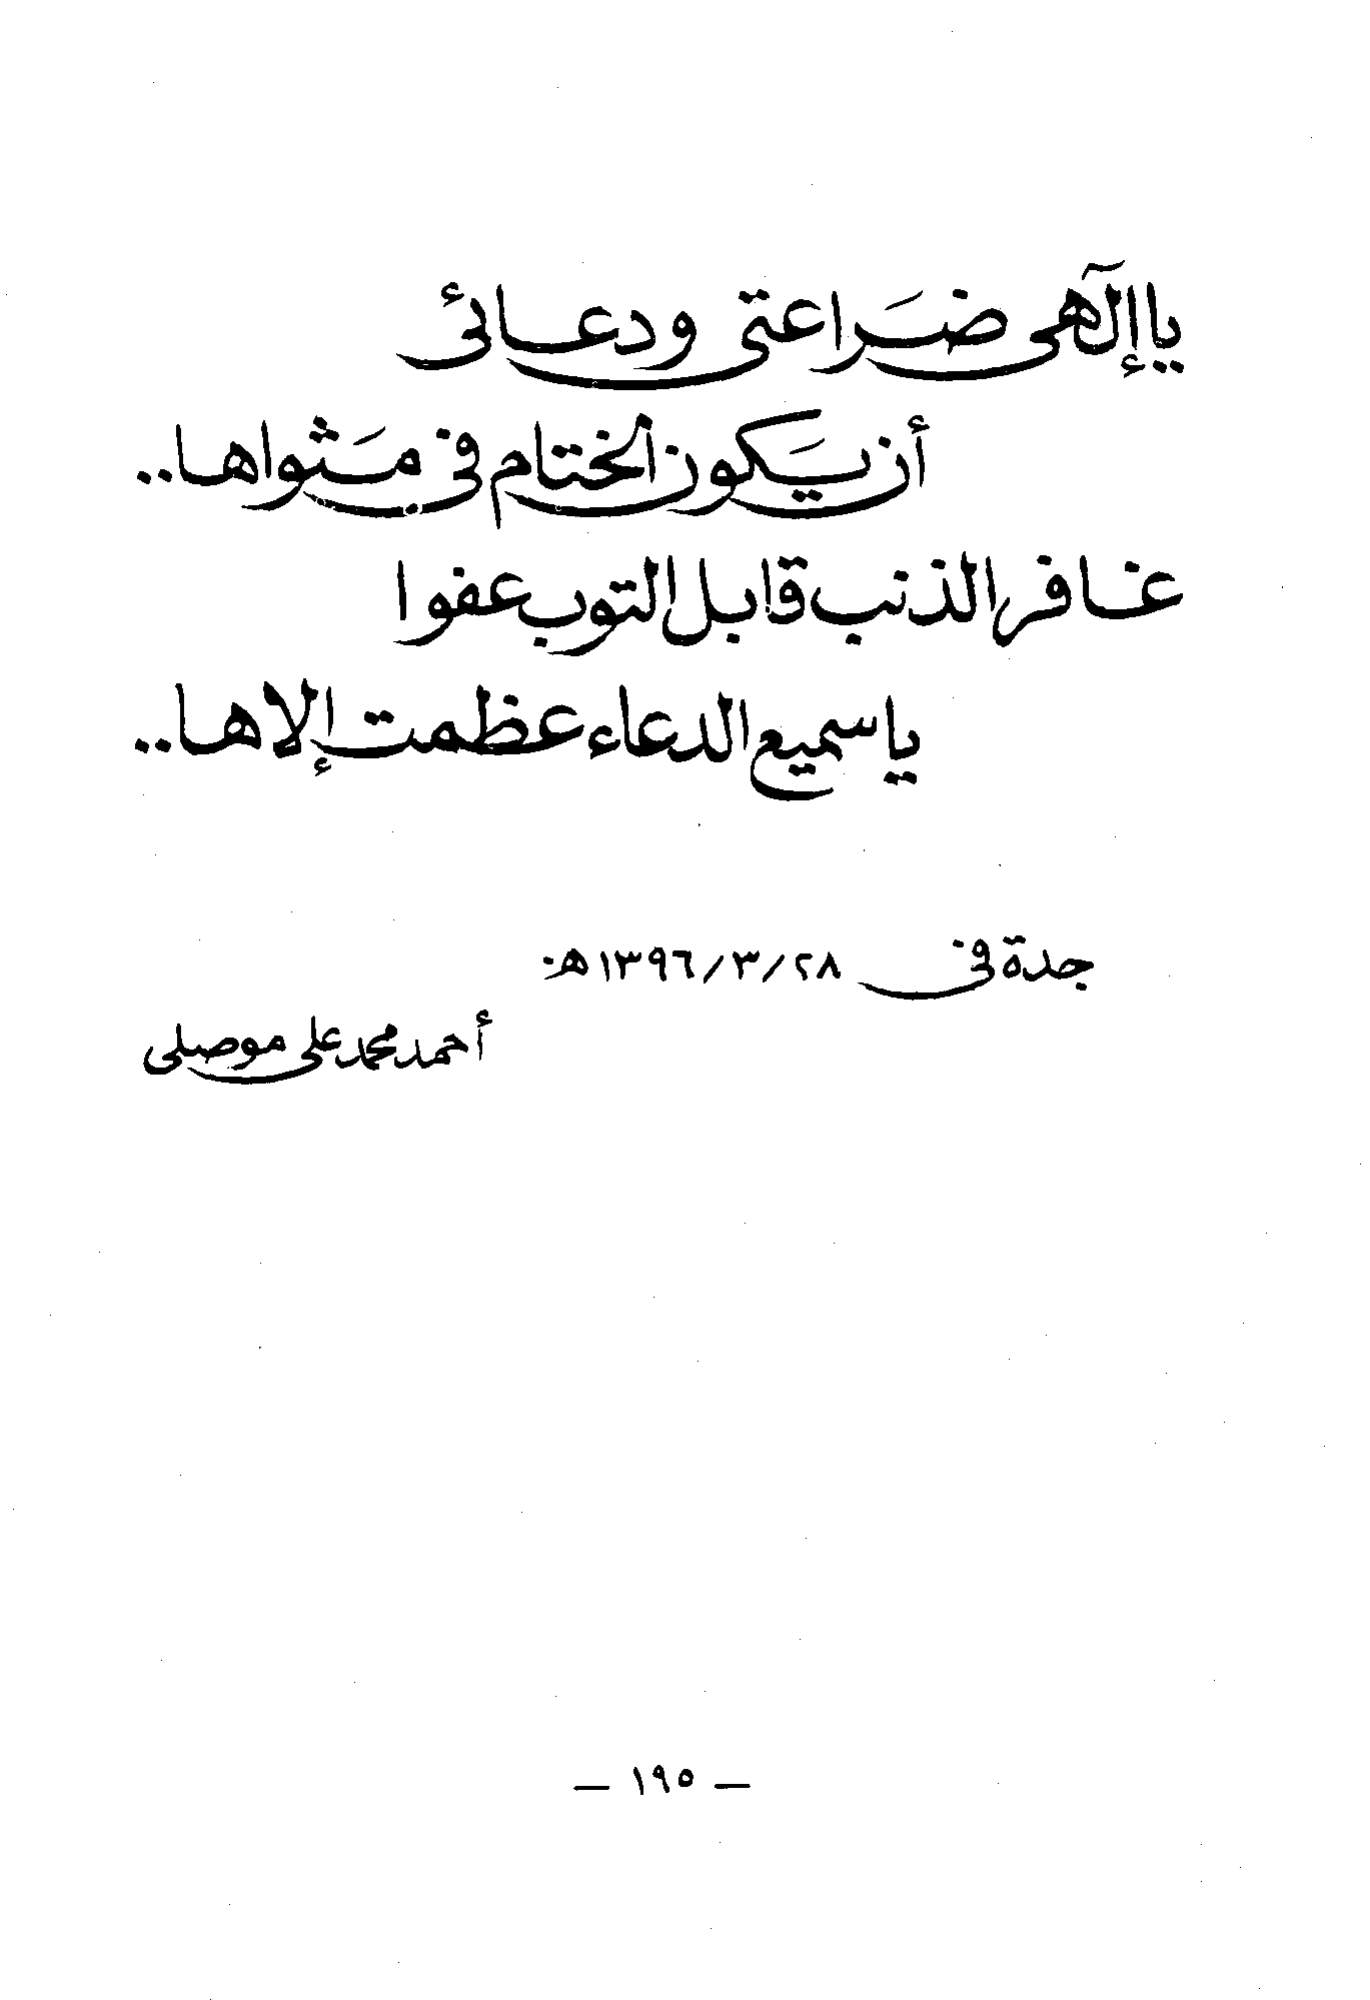 يا إلآهى ضَراعتى ودعائى
أن يَكون الختام فى مَثواها..
غافر الذنب قابل التوب عفوا
يا سميع الدعاء عظمت إلاها..
جدة فى ٢٨/٣/١٣٩٦هـ.
أحمد محمد على موصلى
— ١٩٥ —